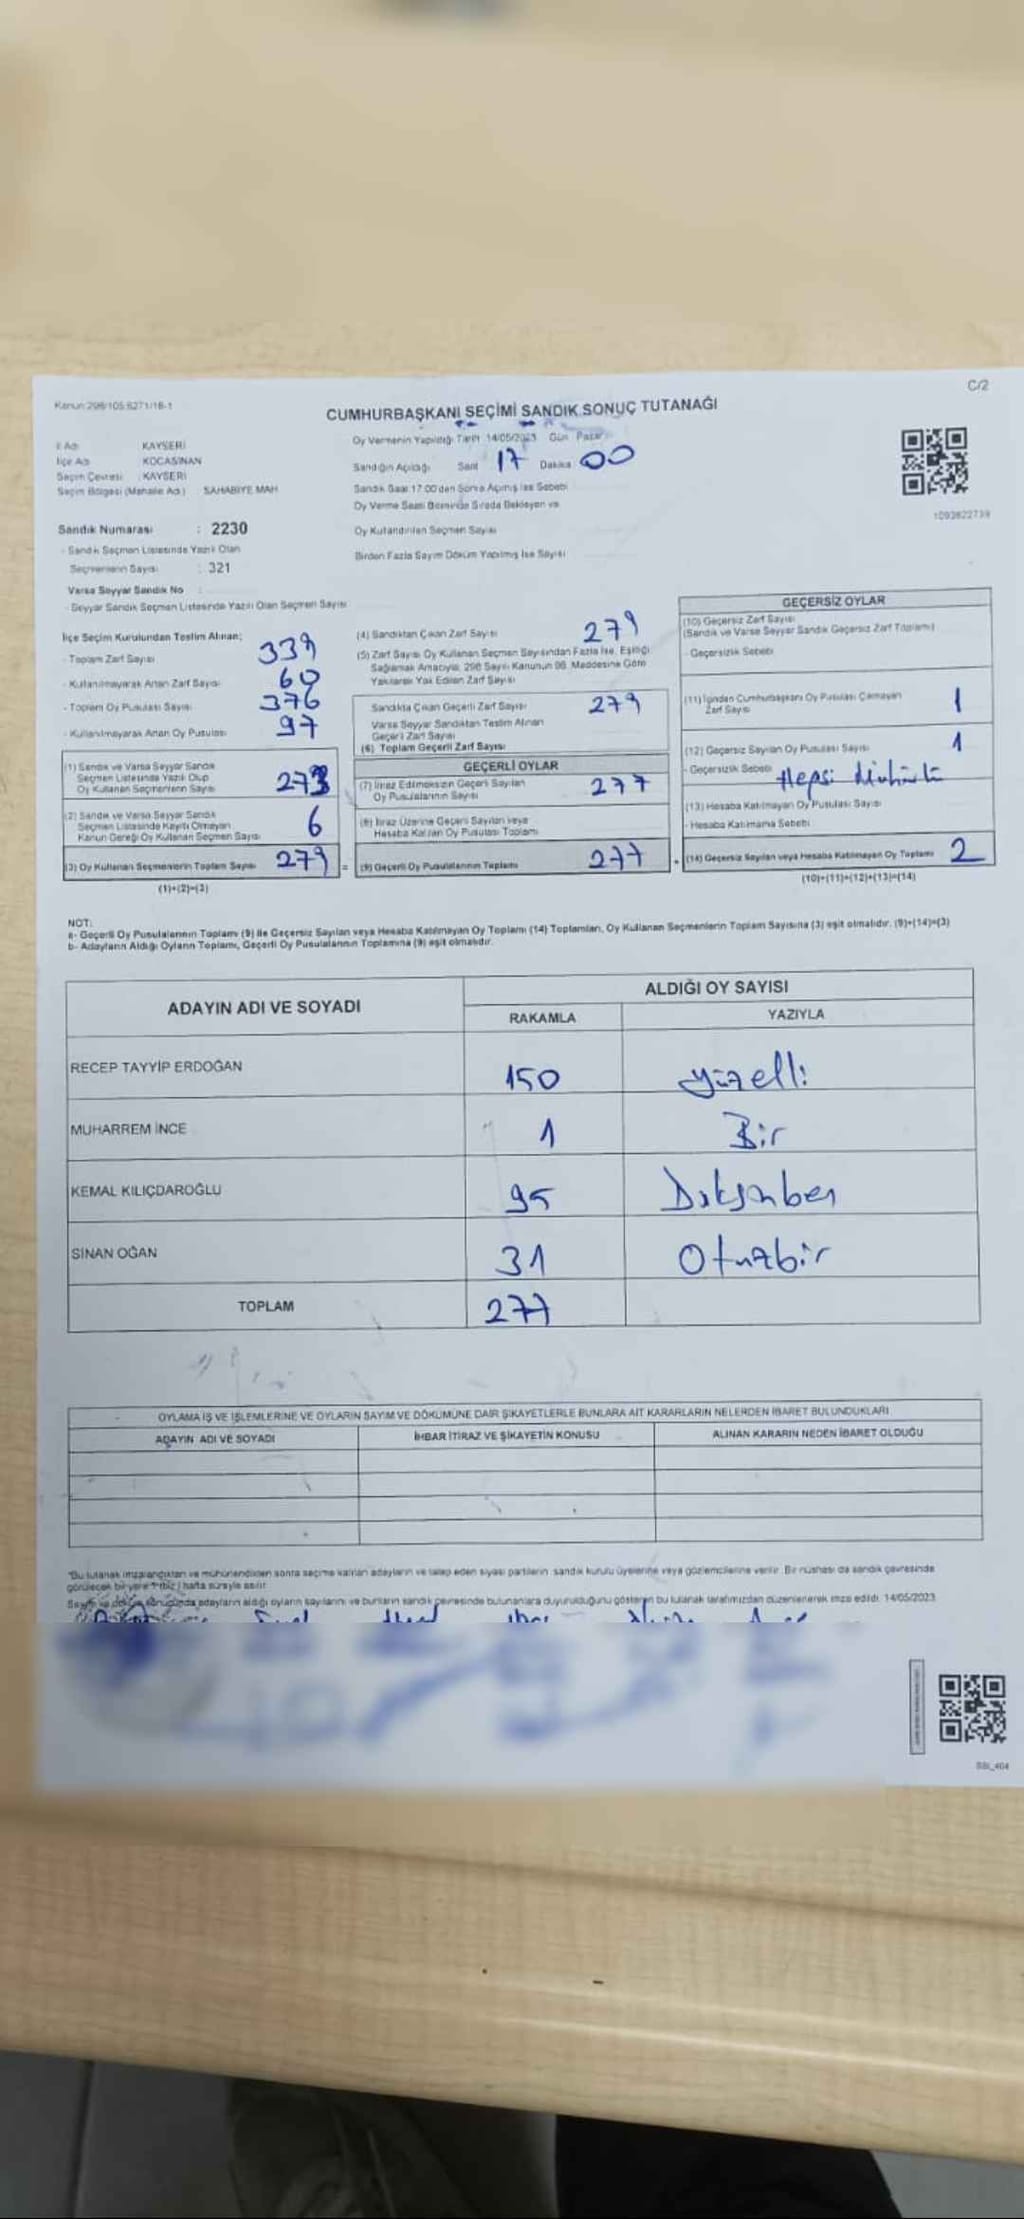 C/2
Kanun:298/105 6271/16-1
CUMHURBAŞKANI SEÇİMİ SANDIK SONUÇ TUTANAĞI
İl Adı KAYSERİ
İlçe Adı KOCASİNAN
Seçim Çevresi : KAYSERİ
Seçim Bölgesi (Mahalle Adı) SAHABİYE MAH
Oy Vermenin Yapıldığı Tarih 14/05/2023 Gün Pazar
Sandığın Açıldığı Saat 17 Dakika 00
Sandık Saat 17:00'den Sonra Açılmış İse Sebebi
Oy Verme Saati Bitiminde Sırada Bekleyen ve
Oy Kullandırılan Seçmen Sayısı
Birden Fazla Sayım Döküm Yapılmış İse Sayısı
1093822739
Sandık Numarası : 2230
- Sandık Seçmen Listesinde Yazılı Olan
Seçmenlerin Sayısı : 321
Varsa Seyyar Sandık No :
- Seyyar Sandık Seçmen Listesinde Yazılı Olan Seçmen Sayısı
İlçe Seçim Kurulundan Teslim Alınan;
- Toplam Zarf Sayısı 339
- Kullanılmayarak Artan Zarf Sayısı 60
- Toplam Oy Pusulası Sayısı 376
- Kullanılmayarak Artan Oy Pusulası 97
(1) Sandık ve Varsa Seyyar Sandık
Seçmen Listesinde Yazılı Olup
Oy Kullanan Seçmenlerin Sayısı 273
(2) Sandık ve Varsa Seyyar Sandık
Seçmen Listesinde Kayıtlı Olmayan
Kanun Gereği Oy Kullanan Seçmen Sayısı 6
(3) Oy Kullanan Seçmenlerin Toplam Sayısı 279
(1)+(2)=(3)
(4) Sandıktan Çıkan Zarf Sayısı 279
(5) Zarf Sayısı Oy Kullanan Seçmen Sayısından Fazla İse, Eşitliği
Sağlamak Amacıyla, 298 Sayılı Kanunun 98. Maddesine Göre
Yakılarak Yok Edilen Zarf Sayısı
Sandıkta Çıkan Geçerli Zarf Sayısı 279
Varsa Seyyar Sandıktan Teslim Alınan
Geçerli Zarf Sayısı
(6) Toplam Geçerli Zarf Sayısı
GEÇERLİ OYLAR
(7) İtiraz Edilmeksizin Geçerli Sayılan
Oy Pusulalarının Sayısı 277
(8) İtiraz Üzerine Geçerli Sayılan veya
Hesaba Katılan Oy Pusulası Toplamı
(9) Geçerli Oy Pusulalarının Toplamı 277
GEÇERSİZ OYLAR
(10) Geçersiz Zarf Sayısı
(Sandık ve Varsa Seyyar Sandık Geçersiz Zarf Toplamı)
- Geçersizlik Sebebi
(11) İçinden Cumhurbaşkanı Oy Pusulası Çıkmayan
Zarf Sayısı 1
(12) Geçersiz Sayılan Oy Pusulası Sayısı 1
- Geçersizlik Sebebi Hepsi
(13) Hesaba Katılmayan Oy Pusulası Sayısı
- Hesaba Katılmama Sebebi
(14) Geçersiz Sayılan veya Hesaba Katılmayan Oy Toplamı 2
(10)+(11)+(12)+(13)=(14)
NOT:
a- Geçerli Oy Pusulalarının Toplamı (9) ile Geçersiz Sayılan veya Hesaba Katılmayan Oy Toplamı (14) Toplamları, Oy Kullanan Seçmenlerin Toplam Sayısına (3) eşit olmalıdır. (9)+(14)=(3)
b- Adayların Aldığı Oyların Toplamı, Geçerli Oy Pusulalarının Toplamına (9) eşit olmalıdır.
ADAYIN ADI VE SOYADI
ALDIĞI OY SAYISI
RAKAMLA YAZIYLA
RECEP TAYYİP ERDOĞAN 150 yüzelli
MUHARREM İNCE 1 Bir
KEMAL KILIÇDAROĞLU 95 Doksanbeş
SİNAN OĞAN 31 Otuzbir
TOPLAM 277
OYLAMA İŞ VE İŞLEMLERİNE VE OYLARIN SAYIM VE DÖKÜMÜNE DAİR ŞİKAYETLERLE BUNLARA AİT KARARLARIN NELERDEN İBARET BULUNDUKLARI
ADAYIN ADI VE SOYADI İHBAR İTİRAZ VE ŞİKAYETİN KONUSU ALINAN KARARIN NEDEN İBARET OLDUĞU
*Bu tutanak imzalandıktan ve mühürlendikten sonra seçime katılan adayların ve talep eden siyasi partilerin sandık kurulu üyelerine veya gözlemcilerine verilir. Bir nüshası da sandık çevresinde
görülecek bir yere 1 (bir) hafta süreyle asılır
Sayım ve döküm sonucunda adayların aldığı oyların sayılarını ve bunların sandık çevresinde bulunanlara duyurulduğunu gösteren bu tutanak tarafımızdan düzenlenerek imza edildi. 14/05/2023